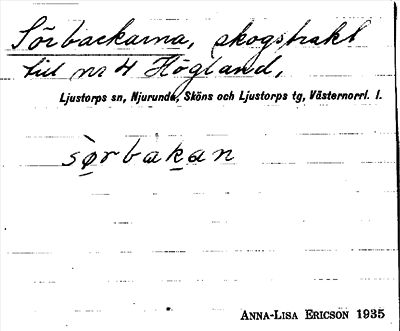 Sörbackarna, skogstrakt
till nr 4 Högland,
Ljustorps sn, Njurunda, Sköns och Ljustorps tg, Västernorrl. l.
sø̀rbakan
ANNA-LISA ERICSON 1935